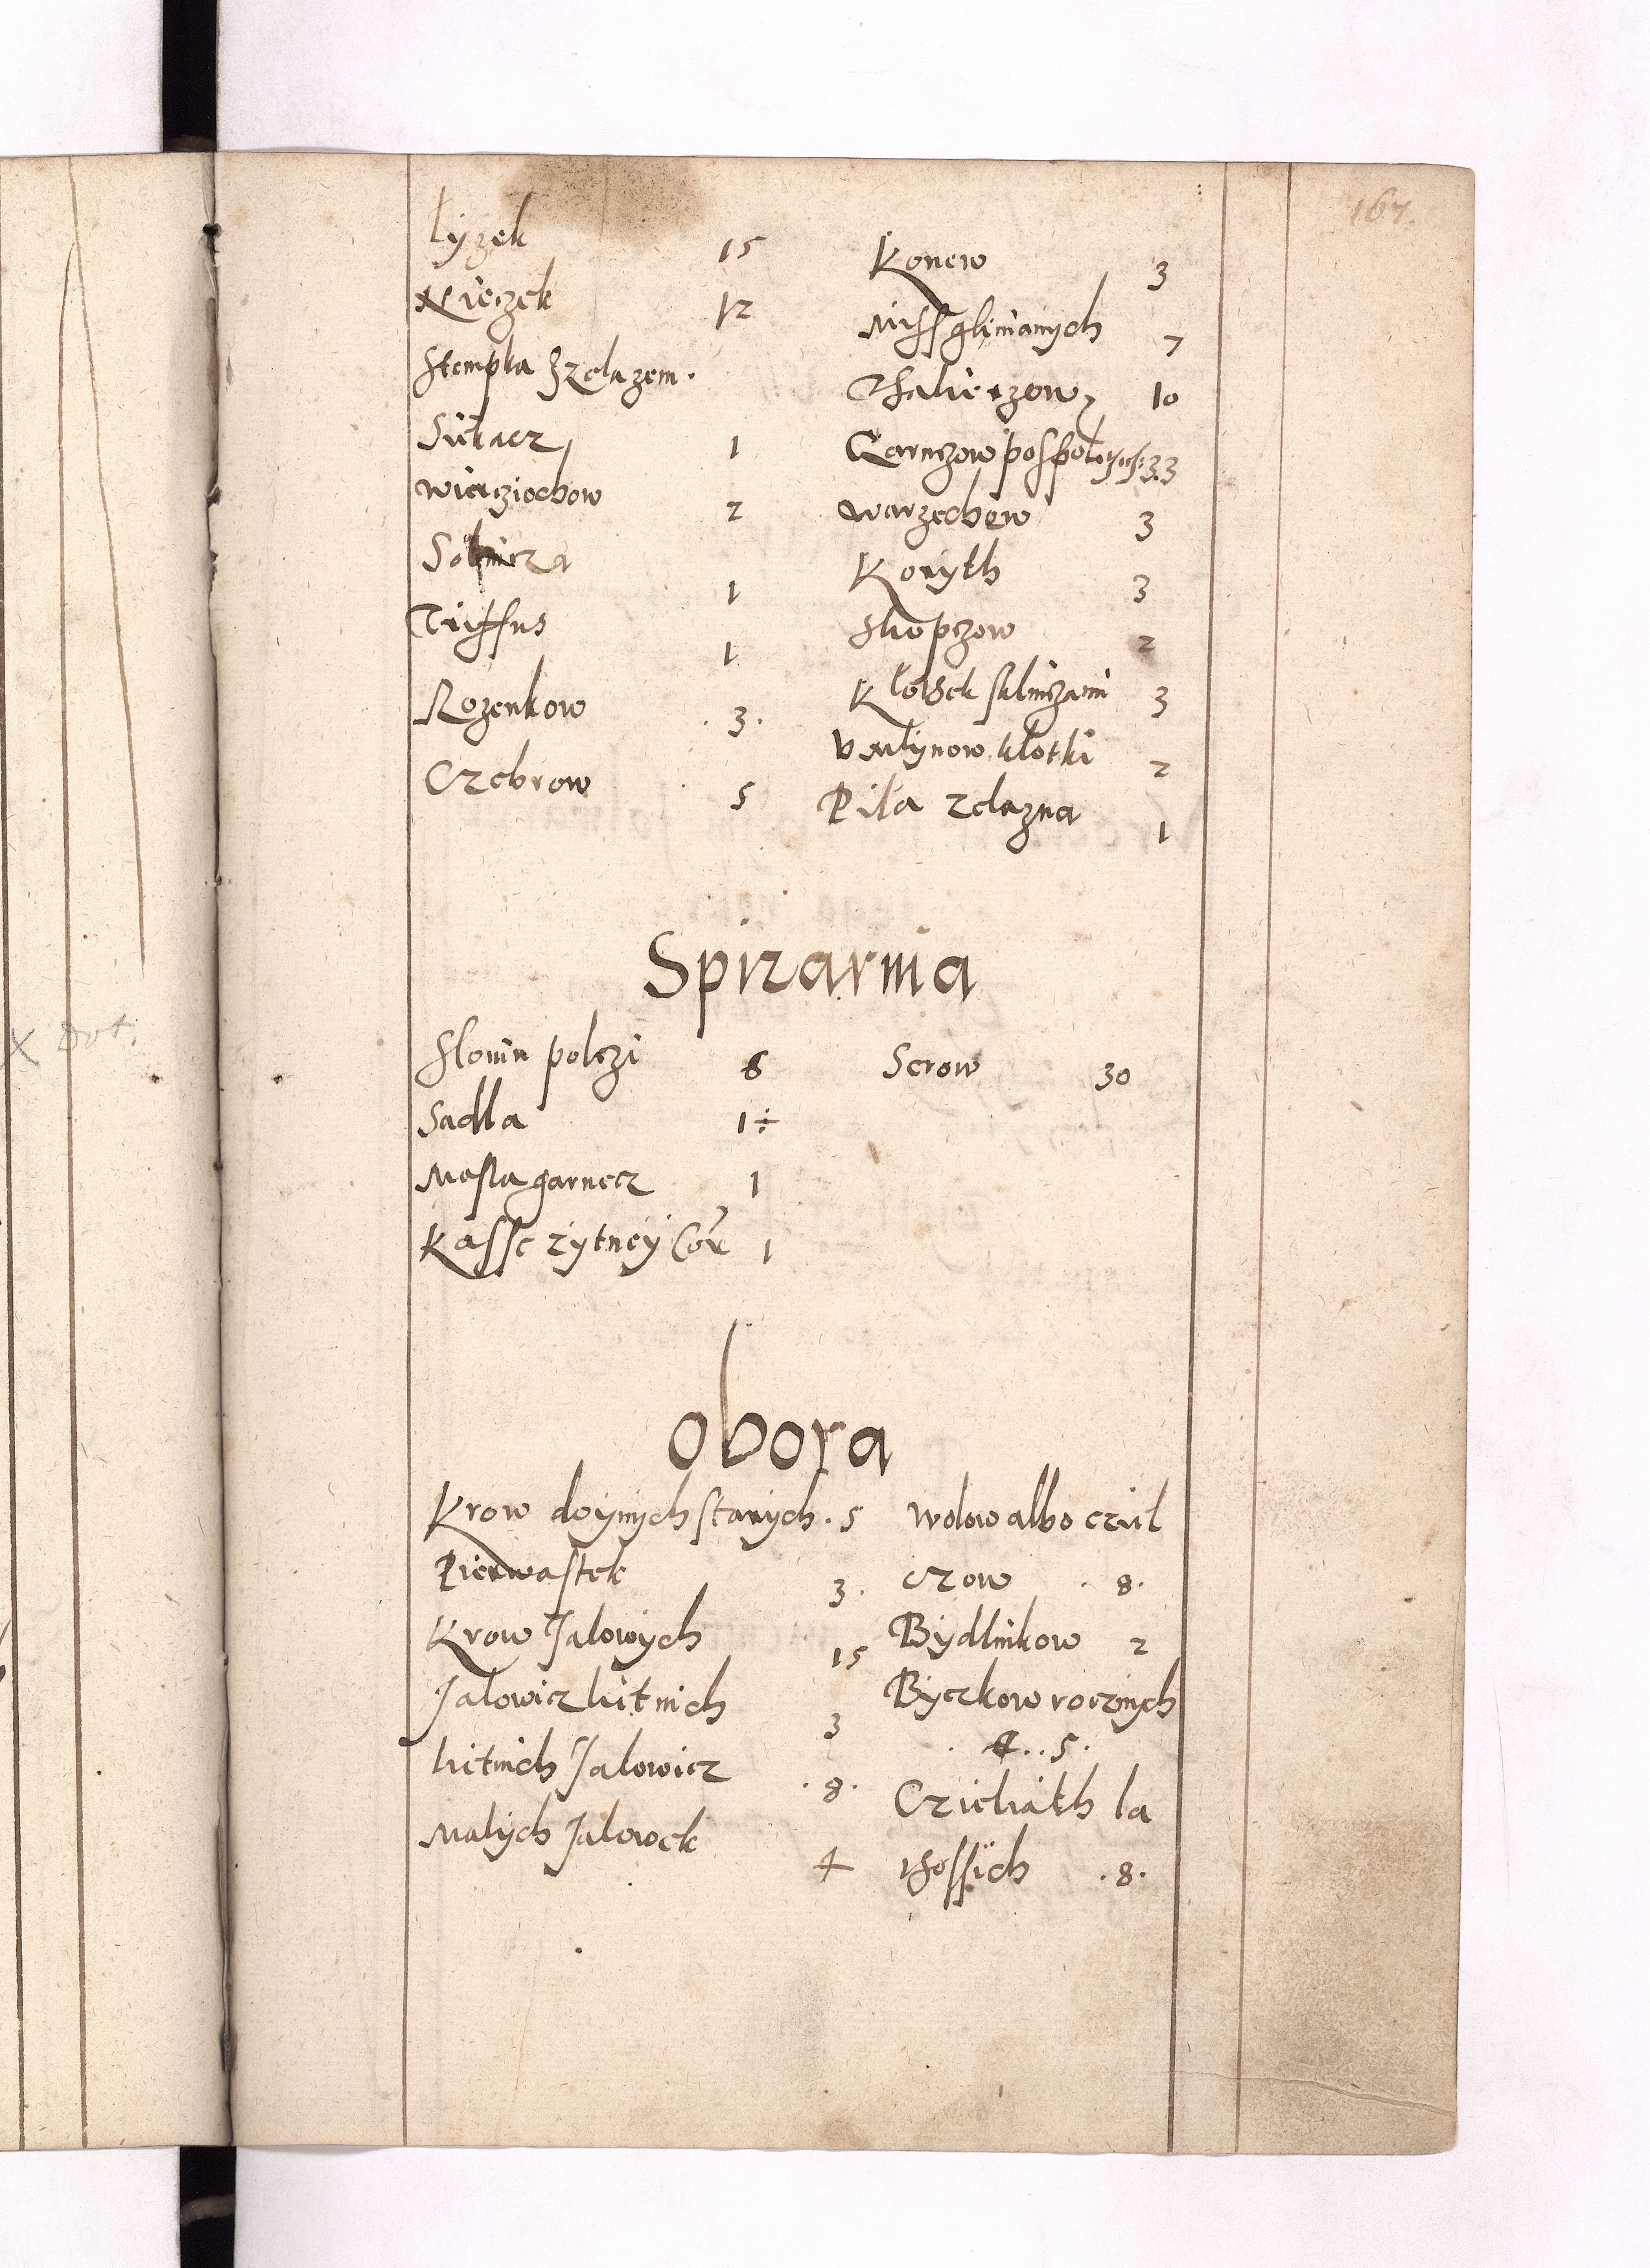 167.
Lyzek 15
Nieczek 12
Stempka Zzelazem.
Siekacz 1
Wierziochow 2
Solnicza 1
Triffus 1
Rozenkow .3.
Czebrow 5
Konew 3
Miss glinianych 7
Thalierzow 10
Garnczow pospolitych 33
Warzechow 3
Koryth 3
Skopczow 2
Klotek sklinczami 3
V Mlynow klotki 2
Pila zelazna 1
Spizarnia
Slonin polczi 6
Sadla 1÷
Masla garnecz 1
Kasse zytney Cor 1
Serow 30
Obora
Krow doynych starych . 5
Pierwastek 3.
Krow Jalowych 15
Jalowicz lietnich 3
lietnich Jalowicz .8.
Malych Jalowek 4
Wolow albo cziel
czow . 8.
Bydlnikow 2
Byczkow rocznych
. . 5.
Czieliath la
thossich .8.
X Dot.